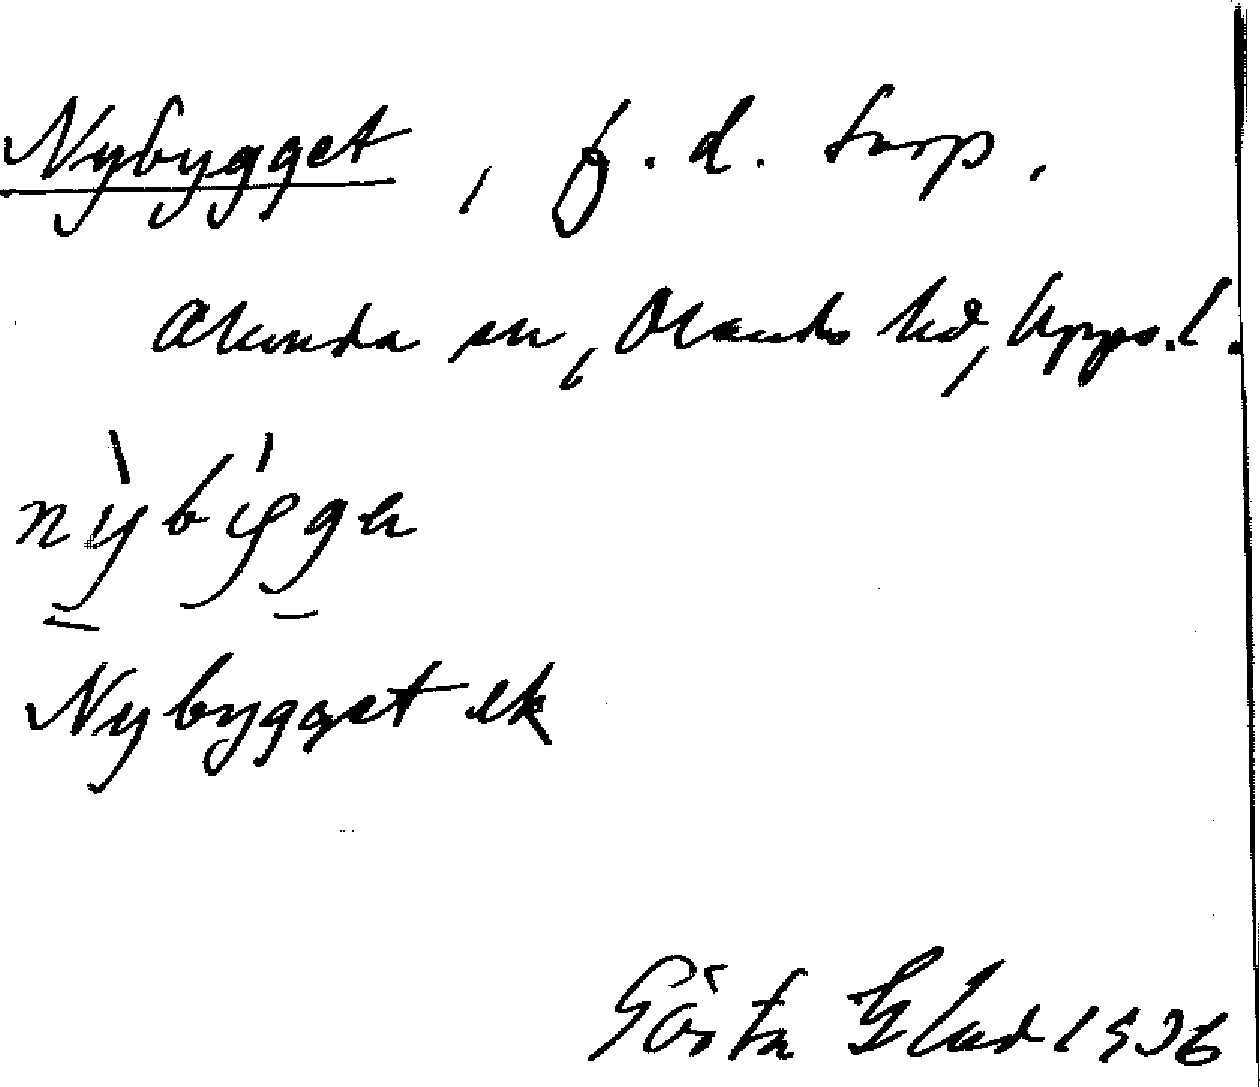 Nybygget, f. d. torp.
Alunda sn, Olands hd, Upps. l.
nỳbýgge
Nybygget ek
Gösta Blad 1936